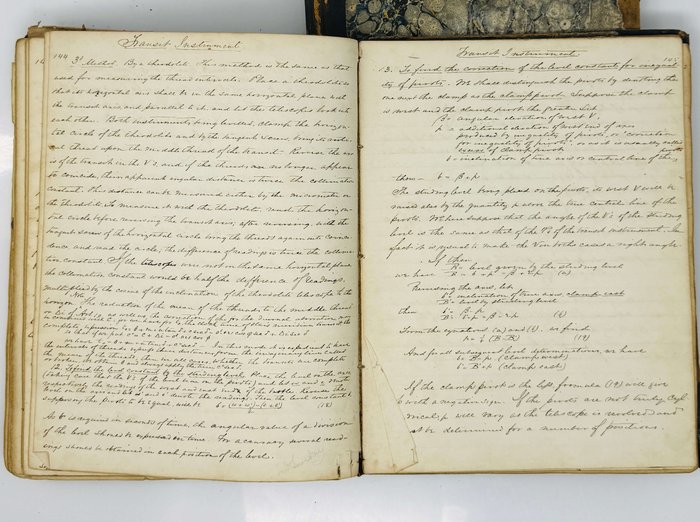 144
Transit Instrument
3d Method. By a theodolite. This method is the same as that
used for measuring thread intervals. Place a theodolite so
that its horizontal axis shall be in the same horizontal plane with
the transit axis and parallel to it and let the telescopes look into
each other. Both instruments being levelled, clamp the horizon-
tal circle of the theodolite and by the tangent screw, bring its verti-
cal thread upon the middle thread of the transit. Reverse the axis
of the transit in the V's, and if the threads no longer appear
to coincide, their apparent angular distance is twice the collimation
constant. This distance can be measured either by the micrometer or
the theodolite. To measure it with the theodolite, read the horizon-
tal circle before reversing the transit axis, after reversing, with the
tangent screw of the horizontal circle bring the threads again into coinci-
dence and read the circle, the difference of readings is twice the collima-
tion constant. If the telescopes were not in the same horizontal plane
the collimation constant would be half the difference of readings
multiplied by the cosine of the inclination of the theodolite telescope to the
horizon.
The reduction of the mean of the threads to the middle thread
complete expression
In this mode it is expedient to have
the intervals of threads
the mean of the threads
12. To find the level constant by the striding level. Place the level on the axis
(taking care that the V's of the level be in the pivots) and let w and e denote
respectively the readings of the west and east ends of the bubble. Reverse the
level on the axis and let w' and e' denote the readings. Then the level constant b
supposing the pivots to be equal, will be b = (18)
As b is required in seconds of time, the angular value of a division
of the level should be expressed in time. For accuracy several read-
ings should be obtained in each position of the level.
Transit Instrument
145
13. To find the correction of the level constant for inequal-
ity of pivots. We shall distinguish the pivots by denoting the
one next the clamp as the clamp pivot. Suppose the clamp
is west and the clamp pivot the greater. Let
B = angular elevation of west V,
p = additional elevation of west end of axis
produced by inequality of pivots, or "correction
for inequality of pivots", as it is usually called
b = inclination of true axis or central line of the pivots
then b = β + p
The striding level being placed on the pivots, its west V will be
raised also by the quantity p above the true central line of the
pivots. We here suppose that the angle of the V's of the striding
level is the same as that of the V's of the transit instrument. In
fact it is usual to make the V's in both cases a right angle.
If then
B = level given by the striding level
we have B = b + p = β + 2p (a)
Reversing the axis, let
b' = inclination of true axis, clamp east
B' = level by striding level
then b' = β - p
B' = b' - p = β - 2p (b)
From the equations (a) and (b), we find
p = ¼ (B - B') (19)
And for all subsequent level determinations, we have
b = B - p (clamp west)
b' = B' + p (clamp east)
If the clamp pivot is the less, formula (19) will give
p with a negative sign. If the pivots are not truly cyl-
indrical, p will vary as the telescope is revolved and
must be determined for a number of positions.